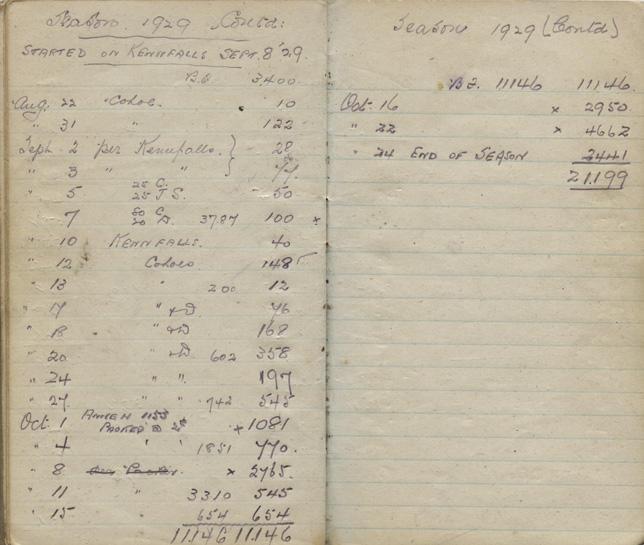 Season 1929 Contd:
STARTED ON KENNFALLS SEPT. 8 '29
B.F. 3,400
Aug. 22 Cohoe. 10
" 31 " 122
Sept. 2 per Kennfalls. } 28
" 3 " " } 77
" 5 25 C. 25 J S. 50
" 7 80 C. 20 D. 3787 100 x
" 10 KENNFALLS. 40
" 12 Cohoes 148
" 13 " 200 12
" 17 " + D 46
" 18 " + D 168
" 20 " + D 602 358
" 24 " " 197
" 27 " 742 545
Oct. 1 1155 x 1081
PACKED
" 4 " " 1851 770.
" 8 per Packer. x 2765.
" 11 " 3310 545
" 15 " 654 654
11,146 11,146
Season 1929 (Contd)
B F. 11146 11,146.
Oct. 16 x 2950
" 22 x 4662
" 24 END OF SEASON 2441
21,199